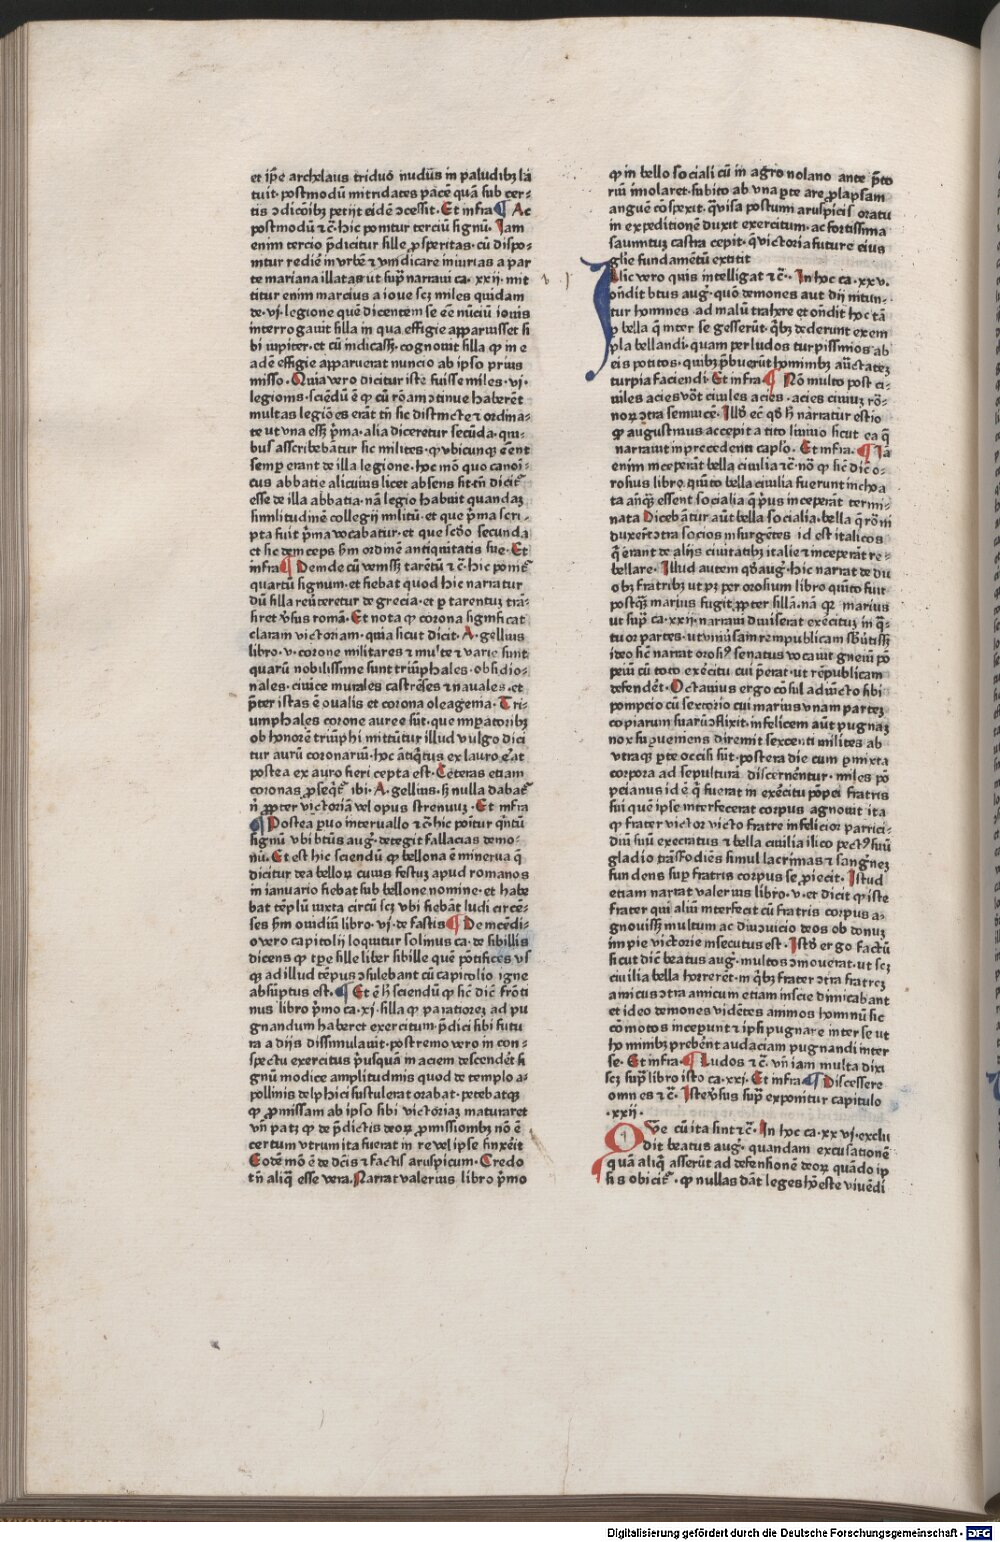 et ip̃e archelaus triduo nudus in paludibꝫ la
tuit· postmodū mitridates pacē quā sub cer-
tis ɔdicōibꝫ petijt eidē ɔcessit· Et infra ¶ Ac
postmodū ⁊ c̃· hic ponitur terciū signū· Jam
enim tercio p̄dicitur sille ꝓsperitas· cū dispo-
nitur rediē in vrbē ⁊ vindicare iniurias a par
te mariana illatas ut supͣ narraui ca· xxij· mit
titur enim marcius a ioue scꝫ miles quidam
de·vj·legione quē dicentem se eē nūciū iouis
interrogauit silla in qua effigie apparuisset si
bi iupiter· et cū indicassꝫ· cognouit silla ꝙ in e
adē effigie apparuerat nuncio ab ipso prius
misso· Quia vero dicitur istē fuisse miles·vj·
legionis· sciēdū ē ꝙ cū rōam ɔtinue haberēt
multas legiōes erāt tn̄ sic distincte ⁊ ordina-
te ut vna essꝫ p̄ma· alia diceretur secūda· qui-
bus asscribebātur sic milites· ꝙ vbicunqꝫ eēnt
semp erant de illa legione· hoc mō quo canoi-
cus abbatie alicuius licet absens sit·tn̄ dicit᷑
esse de illa abbatia· nā legio habuit quandaꝫ
similitudinē collegij militū· et que p̄ma scri-
pta fuit p̄ma vocabatur· et que scdo secunda
et sic deinceps hm̄ ordinē antiquitatis sue· Et
infra ¶ Deinde cū venissꝫ tarētū ⁊ c̃· hic ponit᷑
quartū signum· et fiebat quod hic narratur
dū silla reūteretur de grecia· et p tarentuꝫ trā-
siret v̄sus romā· Et nota ꝙ corona significat
claram victoriam· quia sicut dicit· A· gellius
libro·v· corone militares ⁊ multe ⁊ varie sunt
quarū nobilissime sunt triūphales· obsidio-
nales· ciuice murales castrēses ⁊ nauales· et
p̄ter istas ē oualis et corona oleagenia· Tri-
umphales corone auree sūt· que īnpatoribꝫ
ob honorē triūphi mittūtur illud vulgo dici
tur aurū coronariū· hoc ātiqͥtus ex lauro erat
postea ex auro fieri cepta est· Ceteras etiam
coronas ꝓseqͥt᷑ ibi· A· gellius· sꝫ nulla dabat᷑
n̄ ꝓpter victoriā vel opus strenuuꝫ· Et infra
¶ Postea ꝑuo interuallo ⁊ c̃· hic poītur qͥntū
signū vbi btūs aug᷑· detegit fallacias demo-
nū· Et est hic sciendū ꝙ bellona ē minerua q̄
dicitur dea belloꝝ cuius festuꝫ apud romanos
in ianuario fiebat sub bellone nomine· et habe
bat tēplū iuxta circū scꝫ vbi fiebāt ludi circē-
ses hm̄ ouidiū libro·vj·de fastis ¶ De incēdi-
o vero capitolij loquitur solinus ca·de sibillis
dicens ꝙ tp̄e sille liber sibille quē pōtifices vs
qꝫ ad illud tēpus ɔsulebant cū capitolio igne
absūptus est· ¶ Et ē h̄ sciendū ꝙ sic dic̄ frōti
nus libro p̄mo ca·xj·silla ꝙ paratiorꝫ ad pu
gnandum haberet exercitum· p̄dici sibi futu
ra a dijs dissimulauit· postremo vero in con-
spectu exercitus p̄usquā in aciem descendēt si
gnū modice amplitudinis quod de templo a-
pollinis delphici sustulerat orabat· petebatqꝫ
ꝙ ꝓmissam ab ipso sibi victoriaꝫ maturaret
vn̄ patꝫ ꝙ de p̄dictis deoꝝ ꝓmissiombꝫ nō ē
certum vtrum ita fuerat in re vel ipse finxēit
Eodē mō ē de dc̄is ⁊ factis aruspicum· Credo
tn̄ aliq̄ esse vera· Narrat valerius libro p̄mo
ꝙ in bello sociali cū in agro nolano ante p̄to
riū īmolaret·subito ab vna ꝑte are ꝓlapsam
anguē cōspexit· q̄uisa postumi aruspicis oratu
in expeditionē duxit exercitum· ac fortissima
saunituꝫ castra cepit· q̄ victoria future eius
glie fundamētū extitit
Illic vero quis intelligat ⁊ c̃· In hoc ca·xxv·
on̄dit btūs aug᷑· quō demones aut dij nitun-
tur homines ad malū trahere et on̄dit hoc tā
ꝓ bella q̄ inter se gesserūt· qͥbꝫ dederunt exem
pla bellandi· quam per ludos turpissimos ab
eis potitos· quibꝫ p̄buerūt hominibꝫ auctatēꝫ
turpia faciendi· Et infra ¶ Nō multo post ci-
uiles acies vōt ciuiles acies· acies ciuiuꝫ rō-
noꝝ ɔtra semuicē· Illd ec̄ qd̄ h̄ narratur estio
ꝙ augustinus accepit a tito liuuio sicut ea q̄
narrauit in precedenti caplo· Et infra· ¶ Jā
enim inceperāt bella ciuilia ⁊ c̃· nō ꝙ sic dic̄ o-
rosius libro quīto bella ciuilia fuerunt inchoa
ta anqͣꝫ essent socialia q̄ pus inceperāt termi-
nata Dicebātur aūt bella socialia·bella q̄ rōni
duxert ɔtra socios insurgētes id est italicos
q̄ erant de alijs ciuitatibꝫ italie ⁊ inceperāt re-
bellare· Illud autem qd̄ aug᷑· hic narrat de du
obꝫ fratribꝫ ut pꝫ per orosium libro quīto fuit
postqͣꝫ marius fugit ꝓpter sillā·nā qꝛ marius
ut supͣ ca·xxij·narraui diuiserat exēcituꝫ in q̄-
tuor partes· ut vniūsam rempublicam sb̄ūtissꝫ
ideo sic̄ narrat orosiꝰ senatus vocauit gneiū pō
peiū cū toto exēcitu cui p̄erat·ut rēpublicam
defendēt· Octauius ergo cōsul adiuncto sibi
pompeio cū sextorio cui marius vnam parteꝫ
copiarum suarū ɔflixit·infelicem aūt pugnaꝫ
nox supueniens diremit sexcenti milites ab
vtraqꝫ ꝑte occisi sūt·postera die cum pmixta
corpora ad sepulturā discernentur· miles pō
peianus id ē q̄ fuerat in exēcitu pōpei fratris
sui quē ipse interfecerat corpus agnouit ita
ꝙ frater victor victo fratre infelicior parrici-
diū suū execratus ⁊ bella ciuilia ilico pectꝰ suū
gladio trāsfodiēs simul lacrimas ⁊ sangneꝫ
fundens supͣ fratris corpus se ꝓiecit· Istud
etiam narrat valerius libro·v·et dicit ꝙ iste
frater qui aliū interfecit cū fratris corpus a-
gnouissꝫ multum ac diu ɔuicio deos ob donuꝫ
impie victorie insecutus est· Istd ergo factū
sicut dic̄ beatus aug᷑· multos ɔmouerat·ut scꝫ
ciuilia bella horrerēt·in qͥbꝫ frater ɔtra fratreꝫ
amicus ɔtra amicum etiam inscie dimicabant
et ideo demones vidētes animos hominū sic
cōmotos incepunt ⁊ ipsi pugnare inter se ut
hominibꝫ prebērt audaciam pugnandi inter
se· Et infra· ¶ Ludos ⁊ c̃· vn̄ iam multa dixi
scꝫ supͣ libro isto ca·xxj·Et infra ¶ Discessere
omnes ⁊ c̃· Iste v̄sus supͣ exponitur capitulo
·xxij·
Que cū ita sint ⁊ c̃· In hoc ca·xxvj·exclu
dit beatus aug᷑· quandam excusationē
quā aliq̄ asserūt ad defensionē deoꝝ quādo ip
sis obicit᷑· ꝙ nullas dāt leges hōeste viuēdi
Digitalisierung gefördert durch die Deutsche Forschungsgemeinschaft - DFG